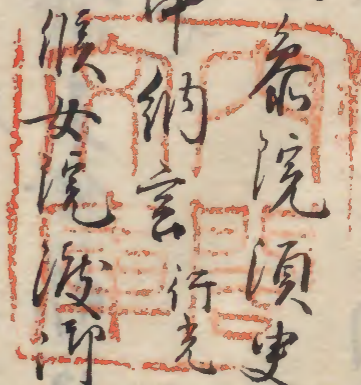 参院須臾
中納言行光
候女院渡御